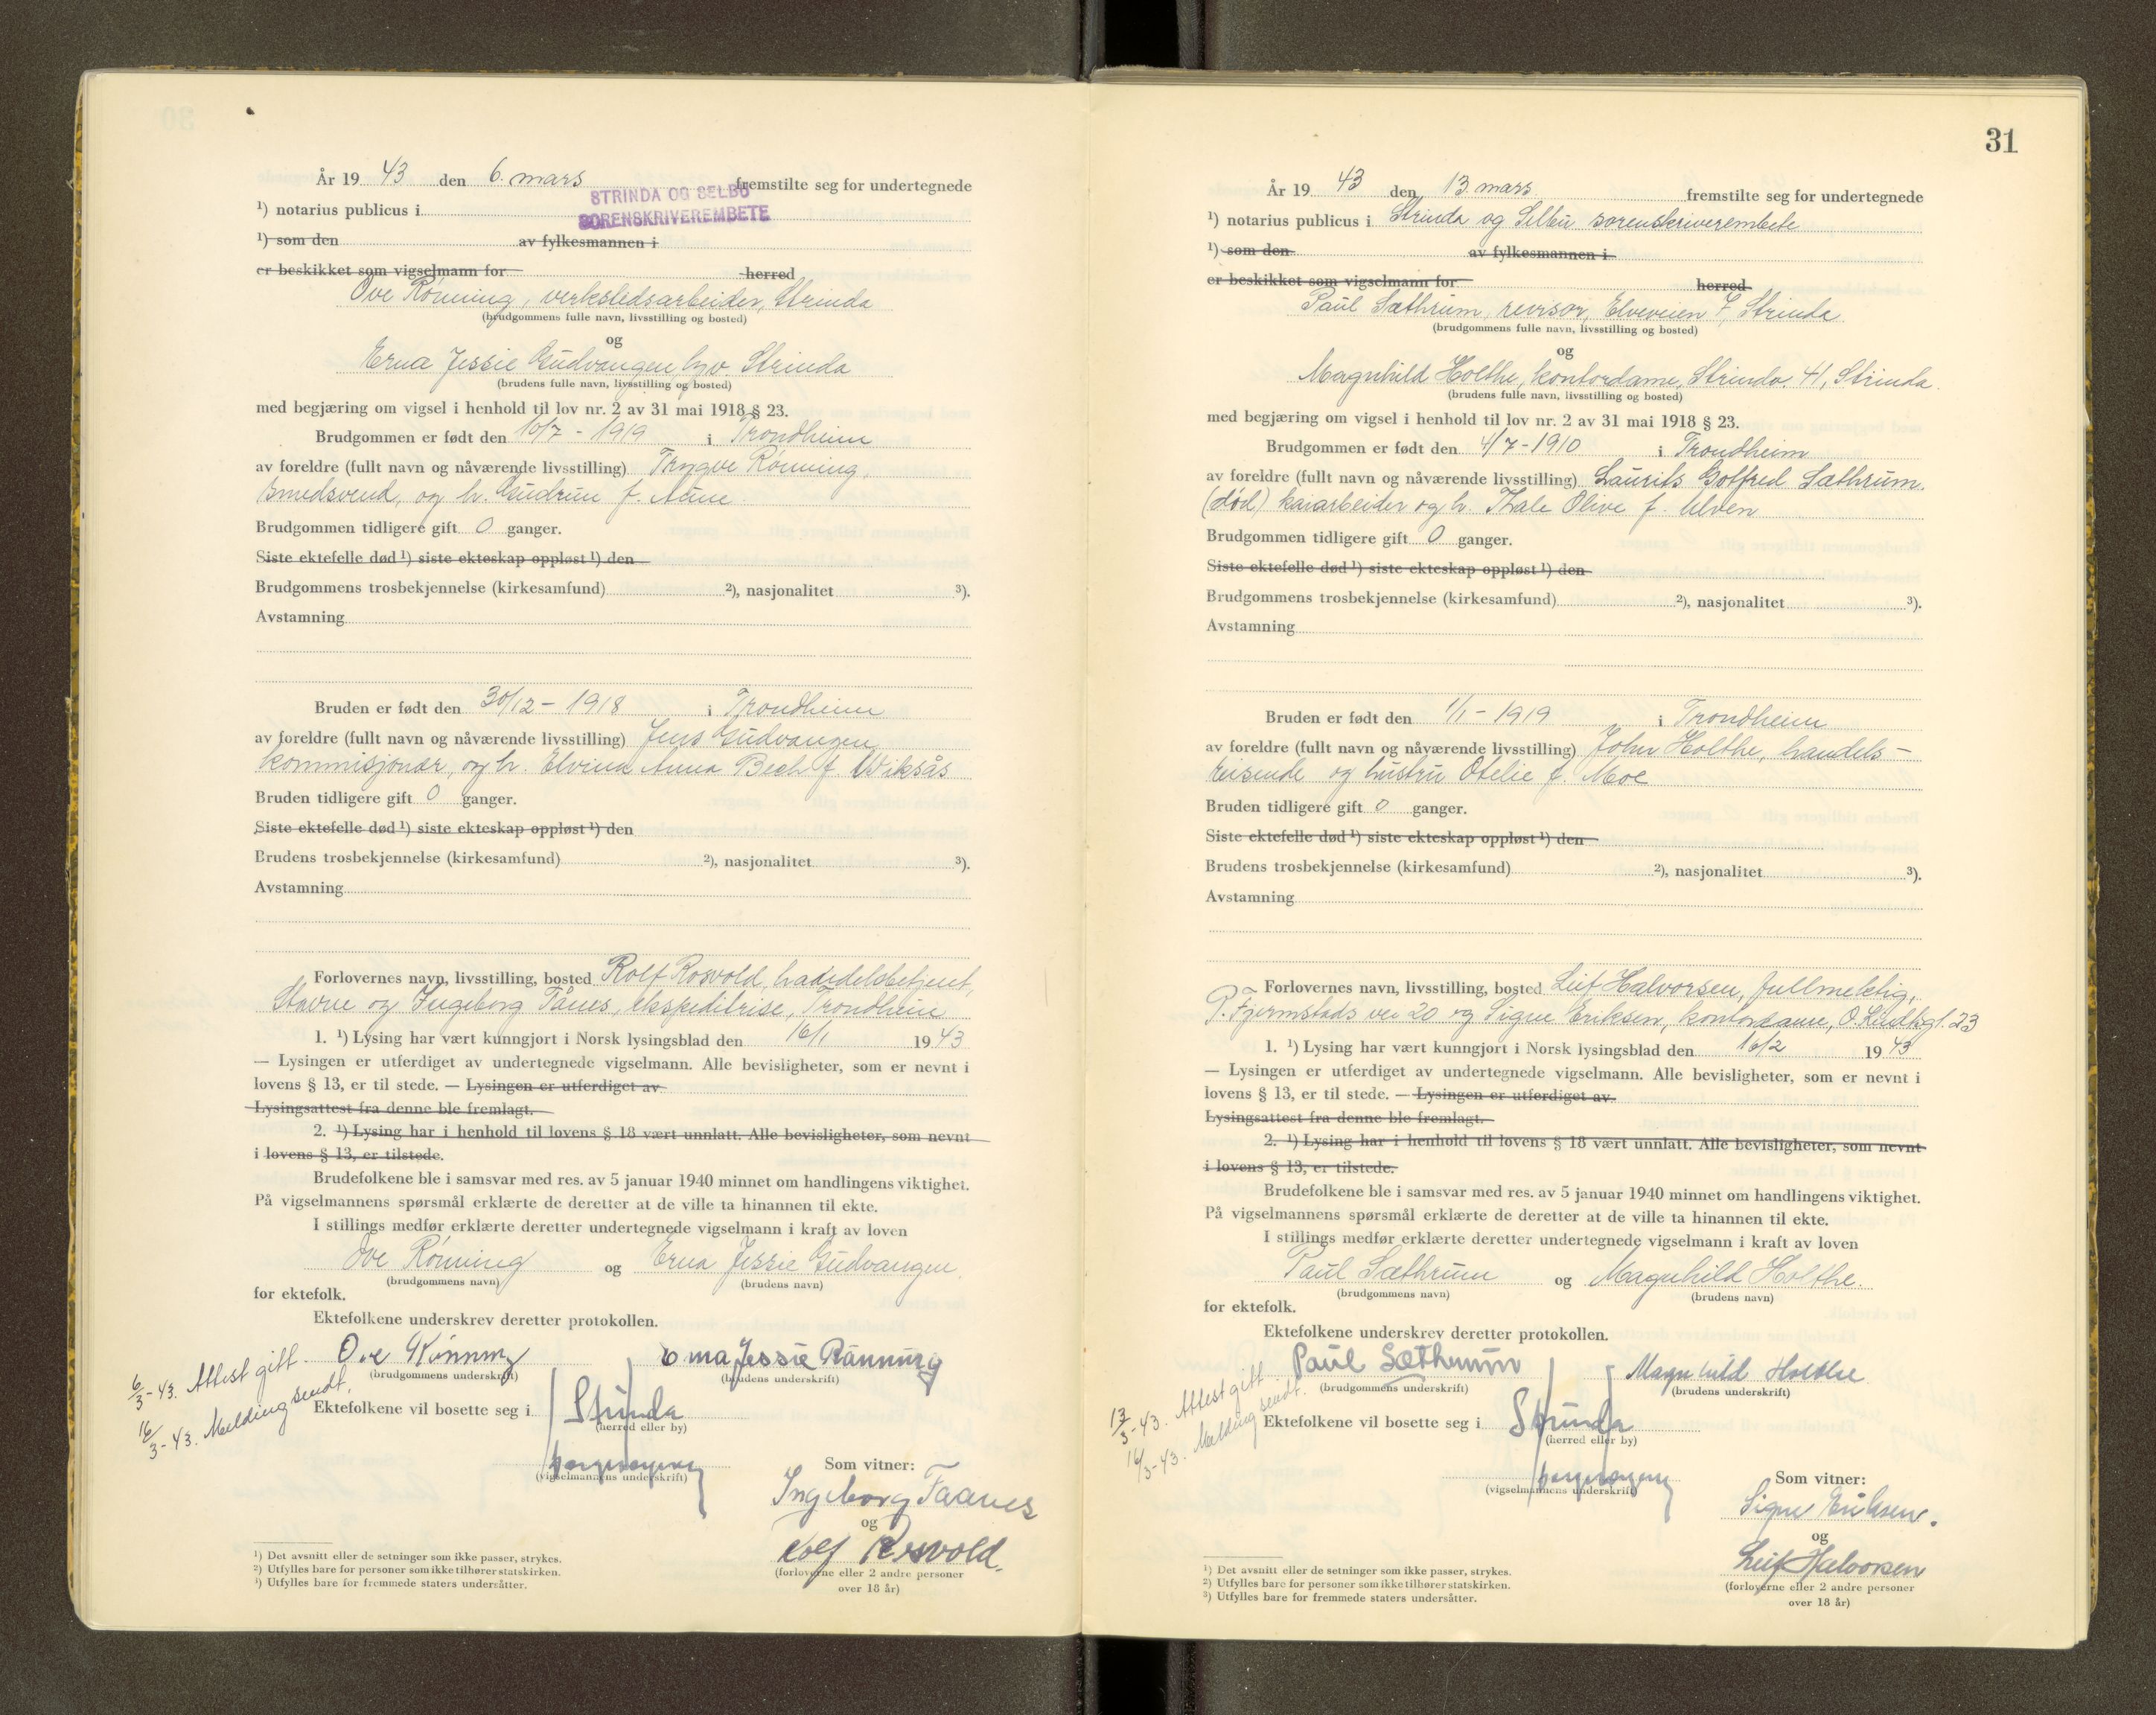 År 19 43 den 6. mars fremstilte seg for undertegnede
STRINDA OG SELBU
SORENSKRIVEREMBETE
¹) notarius publicus i
¹) som den av fylkesmannen i
er beskikket som vigselmann for herred
Ove Rönning, verkstedsarbeider, Strinda
(brudgommens fulle navn, livsstilling og bosted)
og
Erna Jessie Gudvangen, hv. Strinda
(brudens fulle navn, livsstilling og bosted)
med begjæring om vigsel i henhold til lov nr. 2 av 31 mai 1918 § 23.
Brudgommen er født den 16/7 - 1919 i Trondheim
av foreldre (fullt navn og nåværende livsstilling) Trygve Rönning,
smedsvend, og h. Gudrun f. Aune.
Brudgommen tidligere gift 0 ganger.
Siste ektefelle død ¹) siste ekteskap oppløst ¹) den
Brudgommens trosbekjennelse (kirkesamfund) ²), nasjonalitet ³).
Avstamning
Bruden er født den 30/12 - 1918 i Trondheim
av foreldre (fullt navn og nåværende livsstilling) Jens Gudvangen,
kommisjonær, og h. Elvina Anna Bech f. Wiksås
Bruden tidligere gift 0 ganger.
Siste ektefelle død ¹) siste ekteskap oppløst ¹) den
Brudens trosbekjennelse (kirkesamfund) ²), nasjonalitet ³).
Avstamning
Forlovernes navn, livsstilling, bosted Rolf Rosvold, handelsbetjent,
Stavne og Ingeborg Fånes, ekspeditrise, Trondheim
1. ¹) Lysing har vært kunngjort i Norsk lysingsblad den 16/1 19 43
— Lysingen er utferdiget av undertegnede vigselmann. Alle bevisligheter, som er nevnt i
lovens § 13, er til stede. — Lysingen er utferdiget av
Lysingsattest fra denne ble fremlagt.
2. ¹) Lysing har i henhold til lovens § 18 vært unnlatt. Alle bevisligheter, som nevnt
i lovens § 13, er tilstede.
Brudefolkene ble i samsvar med res. av 5 januar 1940 minnet om handlingens viktighet.
På vigselmannens spørsmål erklærte de deretter at de ville ta hinannen til ekte.
I stillings medfør erklærte deretter undertegnede vigselmann i kraft av loven
Ove Rönning og Erna Jessie Gudvangen.
(brudgommens navn) (brudens navn)
for ektefolk.
Ektefolkene underskrev deretter protokollen.
Ove Rönning Erna Jessie Rönning
(brudgommens underskrift) (brudens underskrift)
6/3-43. Attest gitt.
16/3-43. Melding sendt.
Ektefolkene vil bosette seg i Strinda
(herred eller by)
(vigselmannens underskrift)
Som vitner:
Ingeborg Faanes
og
Rolf Rosvold.
(forloverne eller 2 andre personer
over 18 år)
¹) Det avsnitt eller de setninger som ikke passer, strykes.
²) Utfylles bare for personer som ikke tilhører statskirken.
³) Utfylles bare for fremmede staters undersåtter.
31
År 19 43 den 13 mars fremstilte seg for undertegnede
¹) notarius publicus i Strinda og Selbu sorenskriverembete
¹) som den av fylkesmannen i
er beskikket som vigselmann for herred
Paul Sæthrum, revisor, Elveveien 7, Strinda
(brudgommens fulle navn, livsstilling og bosted)
og
Magnhild Holthe, kontordame, Strindv. 41, Strinda.
(brudens fulle navn, livsstilling og bosted)
med begjæring om vigsel i henhold til lov nr. 2 av 31 mai 1918 § 23.
Brudgommen er født den 4/7 - 1910 i Trondheim
av foreldre (fullt navn og nåværende livsstilling) Laurits Gotfred Sæthrum.
(død) kaiarbeider og h. Thale Olive f. Ulven
Brudgommen tidligere gift 0 ganger.
Siste ektefelle død ¹) siste ekteskap oppløst ¹) den
Brudgommens trosbekjennelse (kirkesamfund) ²), nasjonalitet ³).
Avstamning
Bruden er født den 1/1 - 1919 i Trondheim
av foreldre (fullt navn og nåværende livsstilling) John Holthe, handels-
reisende og hustru Otelie f. Moe
Bruden tidligere gift 0 ganger.
Siste ektefelle død ¹) siste ekteskap oppløst ¹) den
Brudens trosbekjennelse (kirkesamfund) ²), nasjonalitet ³).
Avstamning
Forlovernes navn, livsstilling, bosted Leif Halvorsen, fullmektig,
P. Fjermstads vei 20 og Signe Eriksen, kontordame, 23
1. ¹) Lysing har vært kunngjort i Norsk lysingsblad den 16/2 19 43
— Lysingen er utferdiget av undertegnede vigselmann. Alle bevisligheter, som er nevnt i
lovens § 13, er til stede. — Lysingen er utferdiget av.
Lysingsattest fra denne ble fremlagt.
2. ¹) Lysing har i henhold til lovens § 18 vært unnlatt. Alle bevisligheter, som nevnt
i lovens § 13, er tilstede.
Brudefolkene ble i samsvar med res. av 5 januar 1940 minnet om handlingens viktighet.
På vigselmannens spørsmål erklærte de deretter at de ville ta hinannen til ekte.
I stillings medfør erklærte deretter undertegnede vigselmann i kraft av loven
Paul Sæthrum og Magnhild Holthe.
(brudgommens navn) (brudens navn)
for ektefolk.
Ektefolkene underskrev deretter protokollen.
Paul Sæthrum Magnhild Holthe
(brudgommens underskrift) (brudens underskrift)
13/3-43. Attest gitt.
16/3-43. Melding sendt.
Ektefolkene vil bosette seg i Strinda
(herred eller by)
(vigselmannens underskrift)
Som vitner:
Signe Eriksen.
og
Leif Halvorsen
(forloverne eller 2 andre personer
over 18 år)
¹) Det avsnitt eller de setninger som ikke passer, strykes.
²) Utfylles bare for personer som ikke tilhører statskirken.
³) Utfylles bare for fremmede staters undersåtter.